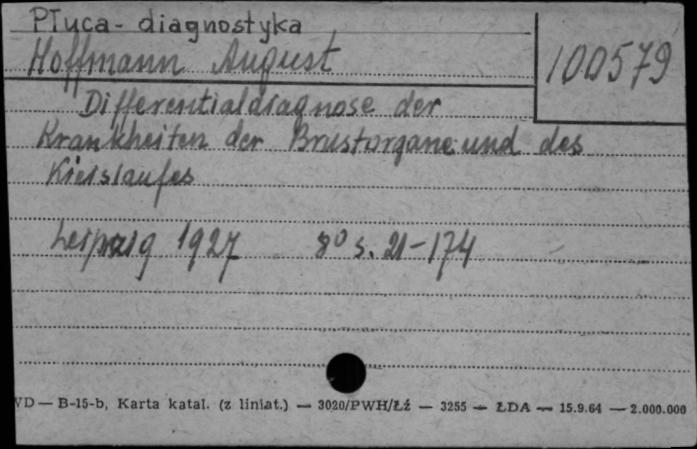 Płuca - diagnostyka
Hoffmann August
100579
Differentialdiagnose der
Krankheiten der Brustorgane und des
Kreislaufes
Leipzig 1927 8° s. 21-174
WD — B-15-b, Karta katal. (z liniat.) — 3020/PWH/Łź — 3255 — ŁDA — 15.9.64 — 2.000.000